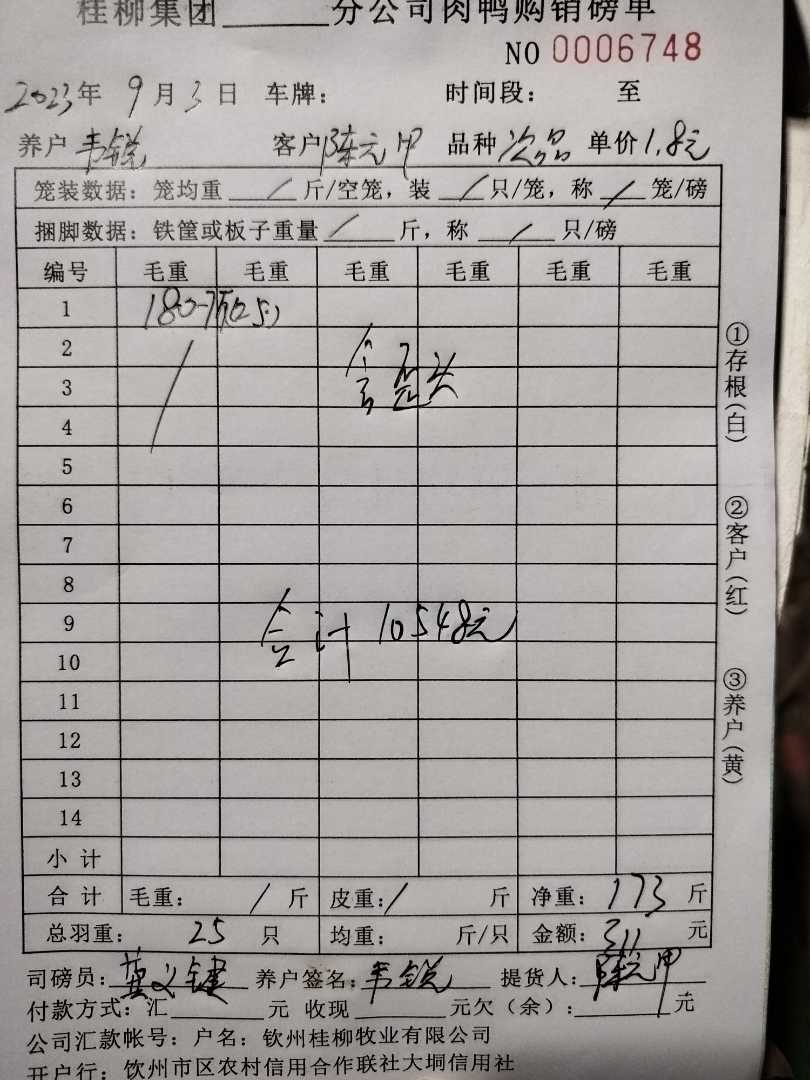 桂柳集团______分公司肉鸭购销磅单
NO 0006748
2023年 9月3日 车牌： 时间段： 至
养户 韦锐 客户 陈元甲 品种 次品 单价 1.8元
笼装数据：笼均重 / 斤/空笼，装 / 只/笼，称 / 笼/磅
捆脚数据：铁筐或板子重量 / 斤，称 / 只/磅
编号 毛重 毛重 毛重 毛重 毛重 毛重
1 180-7
2
3 含歪头
4
5
6
7
8
9 合计 10548元
10
11
12
13
14
小计
合计 毛重： / 斤 皮重： / 斤 净重： 173 斤
总羽重： 25 只 均重： 斤/只 金额： 311 元
司磅员： 养户签名：韦锐 提货人：陈元甲
付款方式：汇______元 收现______元欠（余）：______元
公司汇款帐号：户名：钦州桂柳牧业有限公司
开户行：钦州市区农村信用合作联社大垌信用社
①存根（白）
②客户（红）
③养户（黄）